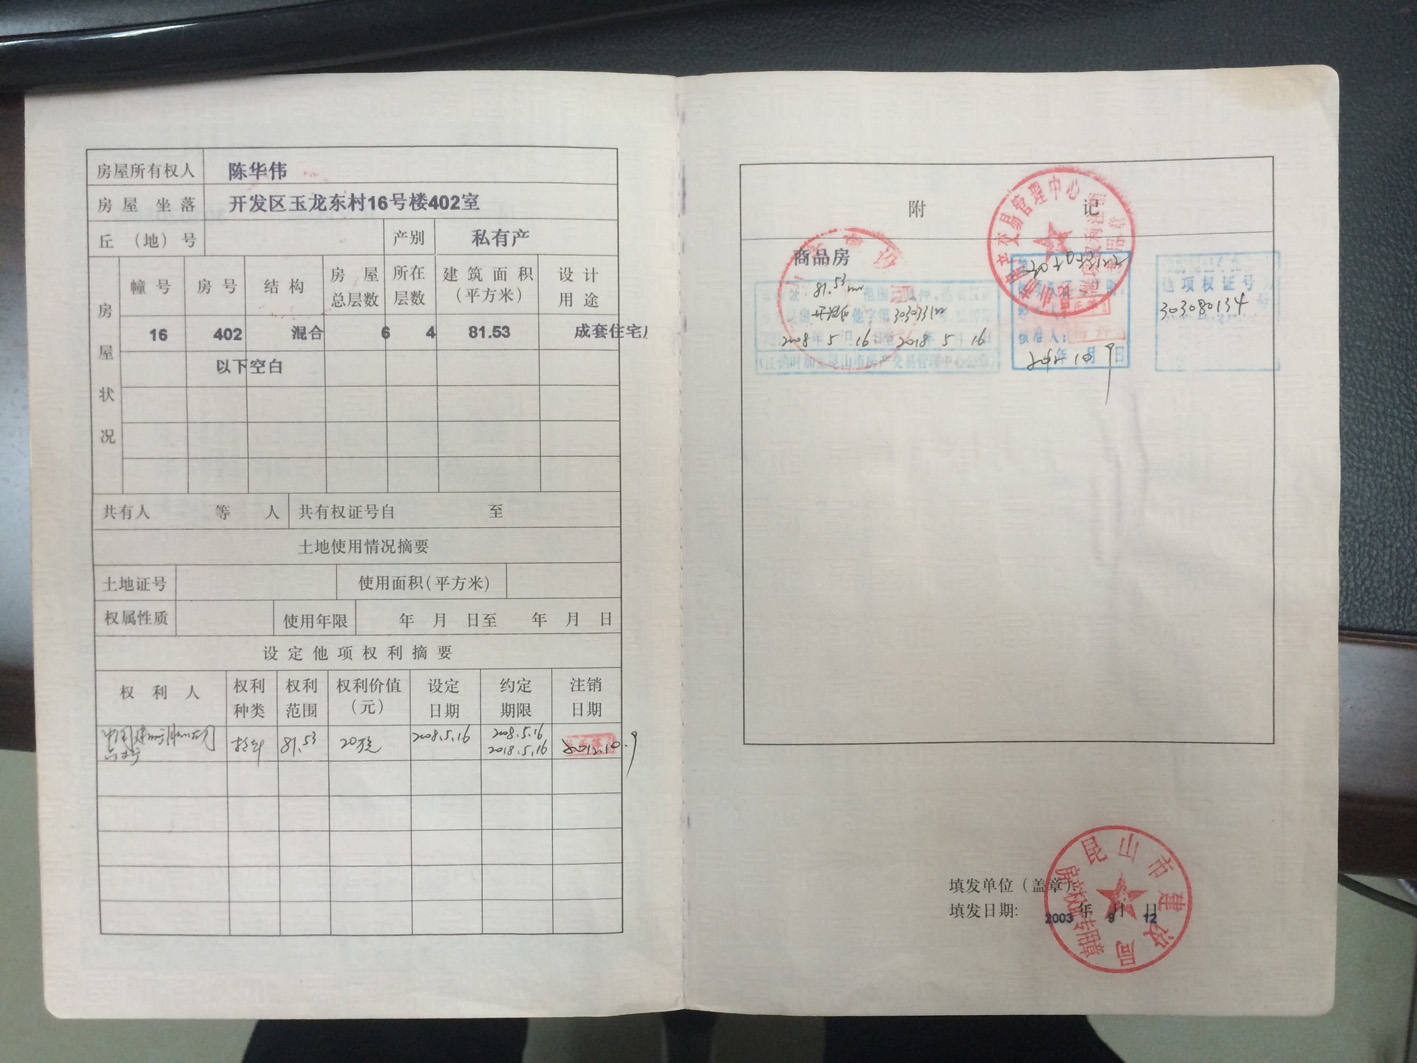 房屋所有权人 陈华伟
房屋坐落 开发区玉龙东村16号楼402室
丘（地）号 产别 私有产
房屋状况
幢号 房号 结构 房屋总层数 所在层数 建筑面积（平方米） 设计用途
16 402 混合 6 4 81.53 成套住宅
以下空白
共有人 等 人 共有权证号自 至
土地使用情况摘要
土地证号 使用面积（平方米）
权属性质 使用年限 年 月 日至 年 月 日
设定他项权利摘要
权利人 权利种类 权利范围 权利价值（元） 设定日期 约定期限 注销日期
81.53 2008.5.16 2008.5.16
2018.5.16 2012.10.9
附 记
商品房
81.53
2008 5 16 2018 5 16
核准人：
2012年10月9日
他项权证号
303080134
交易管理中心
填发单位（盖章）
填发日期： 2003年9月12日
昆山市建设局
房产权专用章